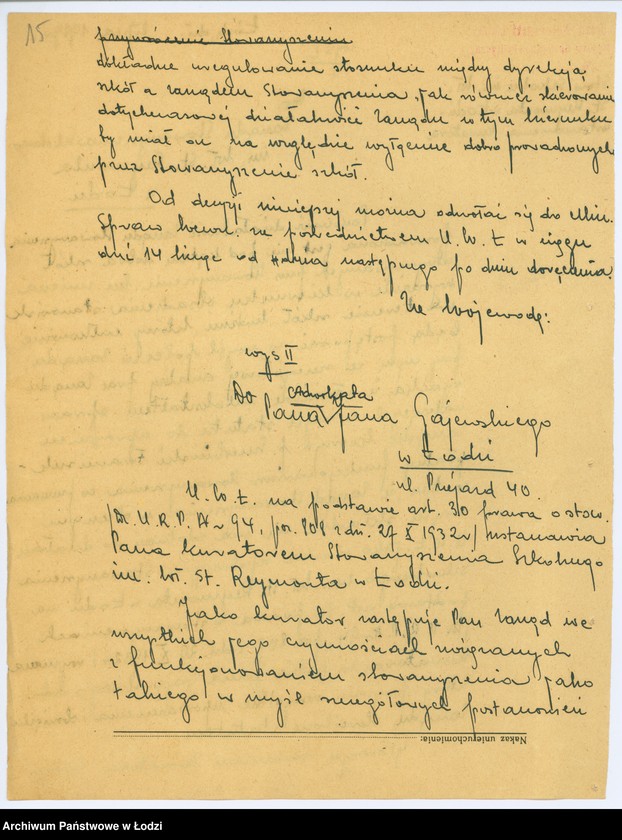 15
przywrócenie Stowarzyszeniu
dokładne uregulowanie stosunku między dyrekcją
szkół a zarządem Stowarzyszenia, jak również skierowanie
dotychczasowej działalności zarządu w tym kierunku
by miał on na względzie wyłącznie dobro prowadzonych
przez Stowarzyszenie szkół.
Od decyzji niniejszej można odwołać się do Min.
Spraw Wewn. za pośrednictwem U.W.Ł w ciągu
dni 14 licząc od dnia następnego po dniu doręczenia.
Za Wojewodę:
wys II
Adwokata
Do Pana Jana Gajewskiego
w Łodzi
ul. Piłsuds 40.
U.W.Ł. na podstawie art. 30 prawa o stow.
/Dz.U.R.P. Nr 94, poz. 808 z dn. 27 X 1932 r/ ustanawia
Pana kuratorem Stowarzyszenia Szkolnego
im. Wł. St. Reymonta w Łodzi.
Jako kurator zastępuje Pan zarząd we
wszystkich jego czynnościach związanych
z funkcjonowaniem stowarzyszenia jako
takiego w myśl szczegółowych postanowień
Nakaz unieruchomienia:
Archiwum Państwowe w Łodzi